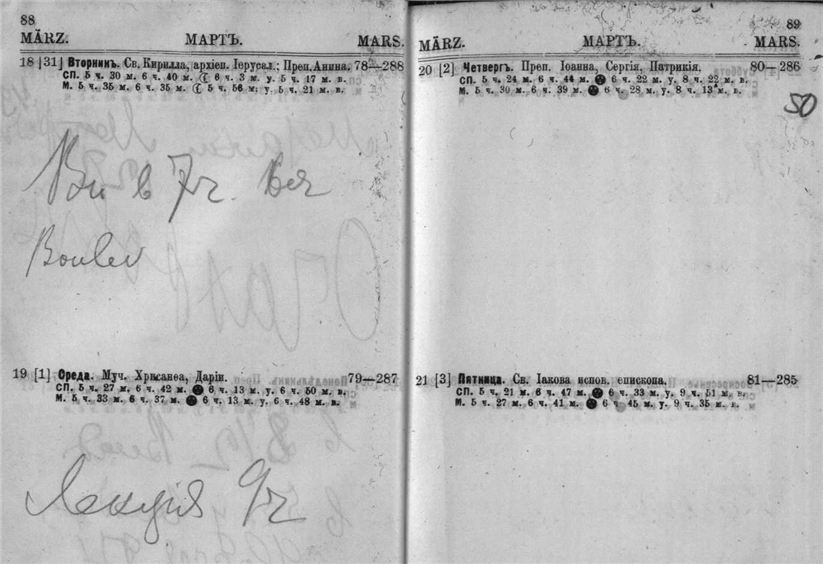 88
MÄRZ. МАРТЪ. MARS.
18 [31] Вторникъ. Св. Кирилла, архіеп. Іерусал.; Преп. Анина. 78—288
СП. 5 ч. 30 м. 6 ч. 40 м. 6 ч. 3 м. у. 5 ч. 17 м. в.
М. 5 ч. 35 м. 6 ч. 35 м. 5 ч. 56 м. у. 5 ч. 21 м. в.
в 7 ч. веч
19 [1] Среда. Муч. Хрисанеа, Даріи. 79—287
СП. 5 ч. 27 м. 6 ч. 42 м. 6 ч. 13 м. у. 6 ч. 50 м. в.
М. 5 ч. 33 м. 6 ч. 37 м. 6 ч. 13 м. у. 6 ч. 48 м. в.
Лекция 9 ч
89
MÄRZ. МАРТЪ. MARS.
20 [2] Четвергъ. Преп. Іоанна, Сергія, Патрикія. 80—286
СП. 5 ч. 24 м. 6 ч. 44 м. 6 ч. 22 м. у. 8 ч. 22 м. в.
М. 5 ч. 30 м. 6 ч. 39 м. 6 ч. 28 м. у. 8 ч. 13 м. в.
50
21 [3] Пятница. Св. Іакова испов. епископа. 81—285
СП. 5 ч. 21 м. 6 ч. 47 м. 6 ч. 33 м. у. 9 ч. 51 м. в.
М. 5 ч. 27 м. 6 ч. 41 м. 6 ч. 45 м. у. 9 ч. 35 м. в.